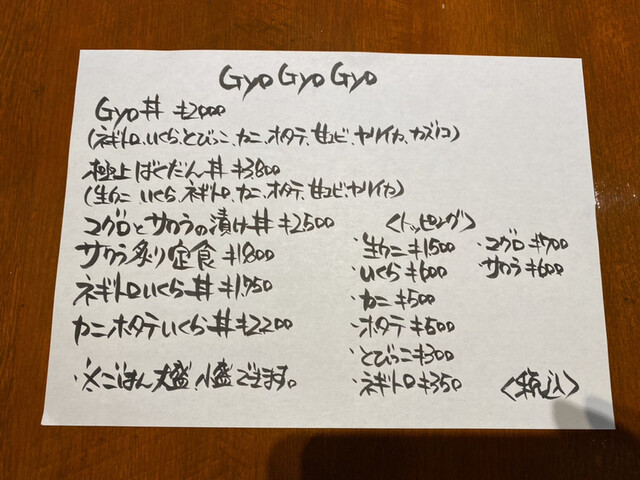 Gyo Gyo Gyo
Gyo丼 ¥2000
(ネギトロ、いくら、とびっこ、カニ、ホタテ、甘エビ、ヤリイカ、カズノコ)
極上ばくだん丼 ¥3,800
(生ウニ いくら、ネギトロ、カニ、ホタテ、甘エビ、ヤリイカ)
マグロとサクラの漬け丼 ¥2500
サクラ炙り定食 ¥1800
ネギトロいくら丼 ¥1,750
カニホタテいくら丼 ¥2,200
※ごはん大盛、小盛できます。
<トッピング>
・生ウニ ¥1500
・いくら ¥600
・カニ ¥500
・ホタテ ¥500
・とびっこ ¥300
・ネギトロ ¥350
・マグロ ¥700
サクラ ¥600
<税込>